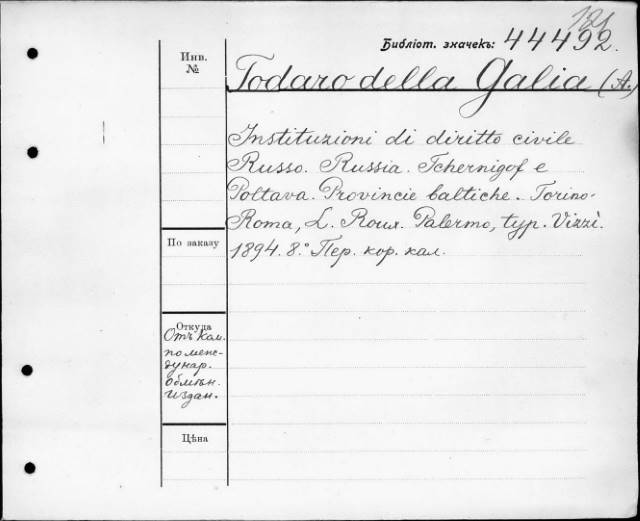 181
Библіот. значекъ: 44492.
Инв.
№
Todaro della Galia (A.)
Instituzioni di diritto civile
Russo. Russia. Tchernigof e
Poltava. Provincie baltiche. Torino-
Roma, L. Roux. Palermo, typ. Vizzì.
1894. 8.° Пер. кор. кал.
По заказу
Откуда
Отъ Ком.
по меж-
дунар.
обмѣн.
издан.
Цѣна